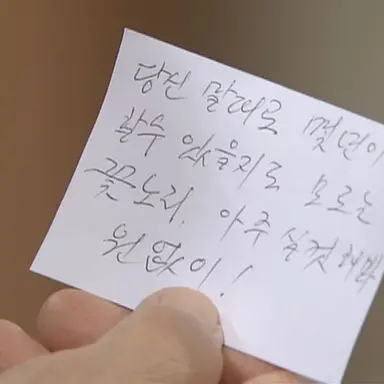 당신 말대로 몇년이
할수 있을지도 모르는
꽃노리. 아주 실컷해봐
원없이!